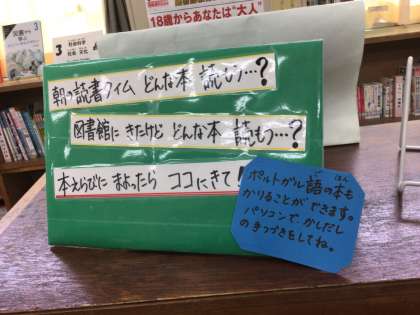 18歳からあなたは"大人"
3
朝の読書タイム どんな本 読もう…?
図書館に きたけど どんな本 読もう…?
本えらびに まよったら ココにきて!
ポルトガル語の本も
ご
ほん
かりることができます。
パソコンで、かしだし
の手つづきをしてね。